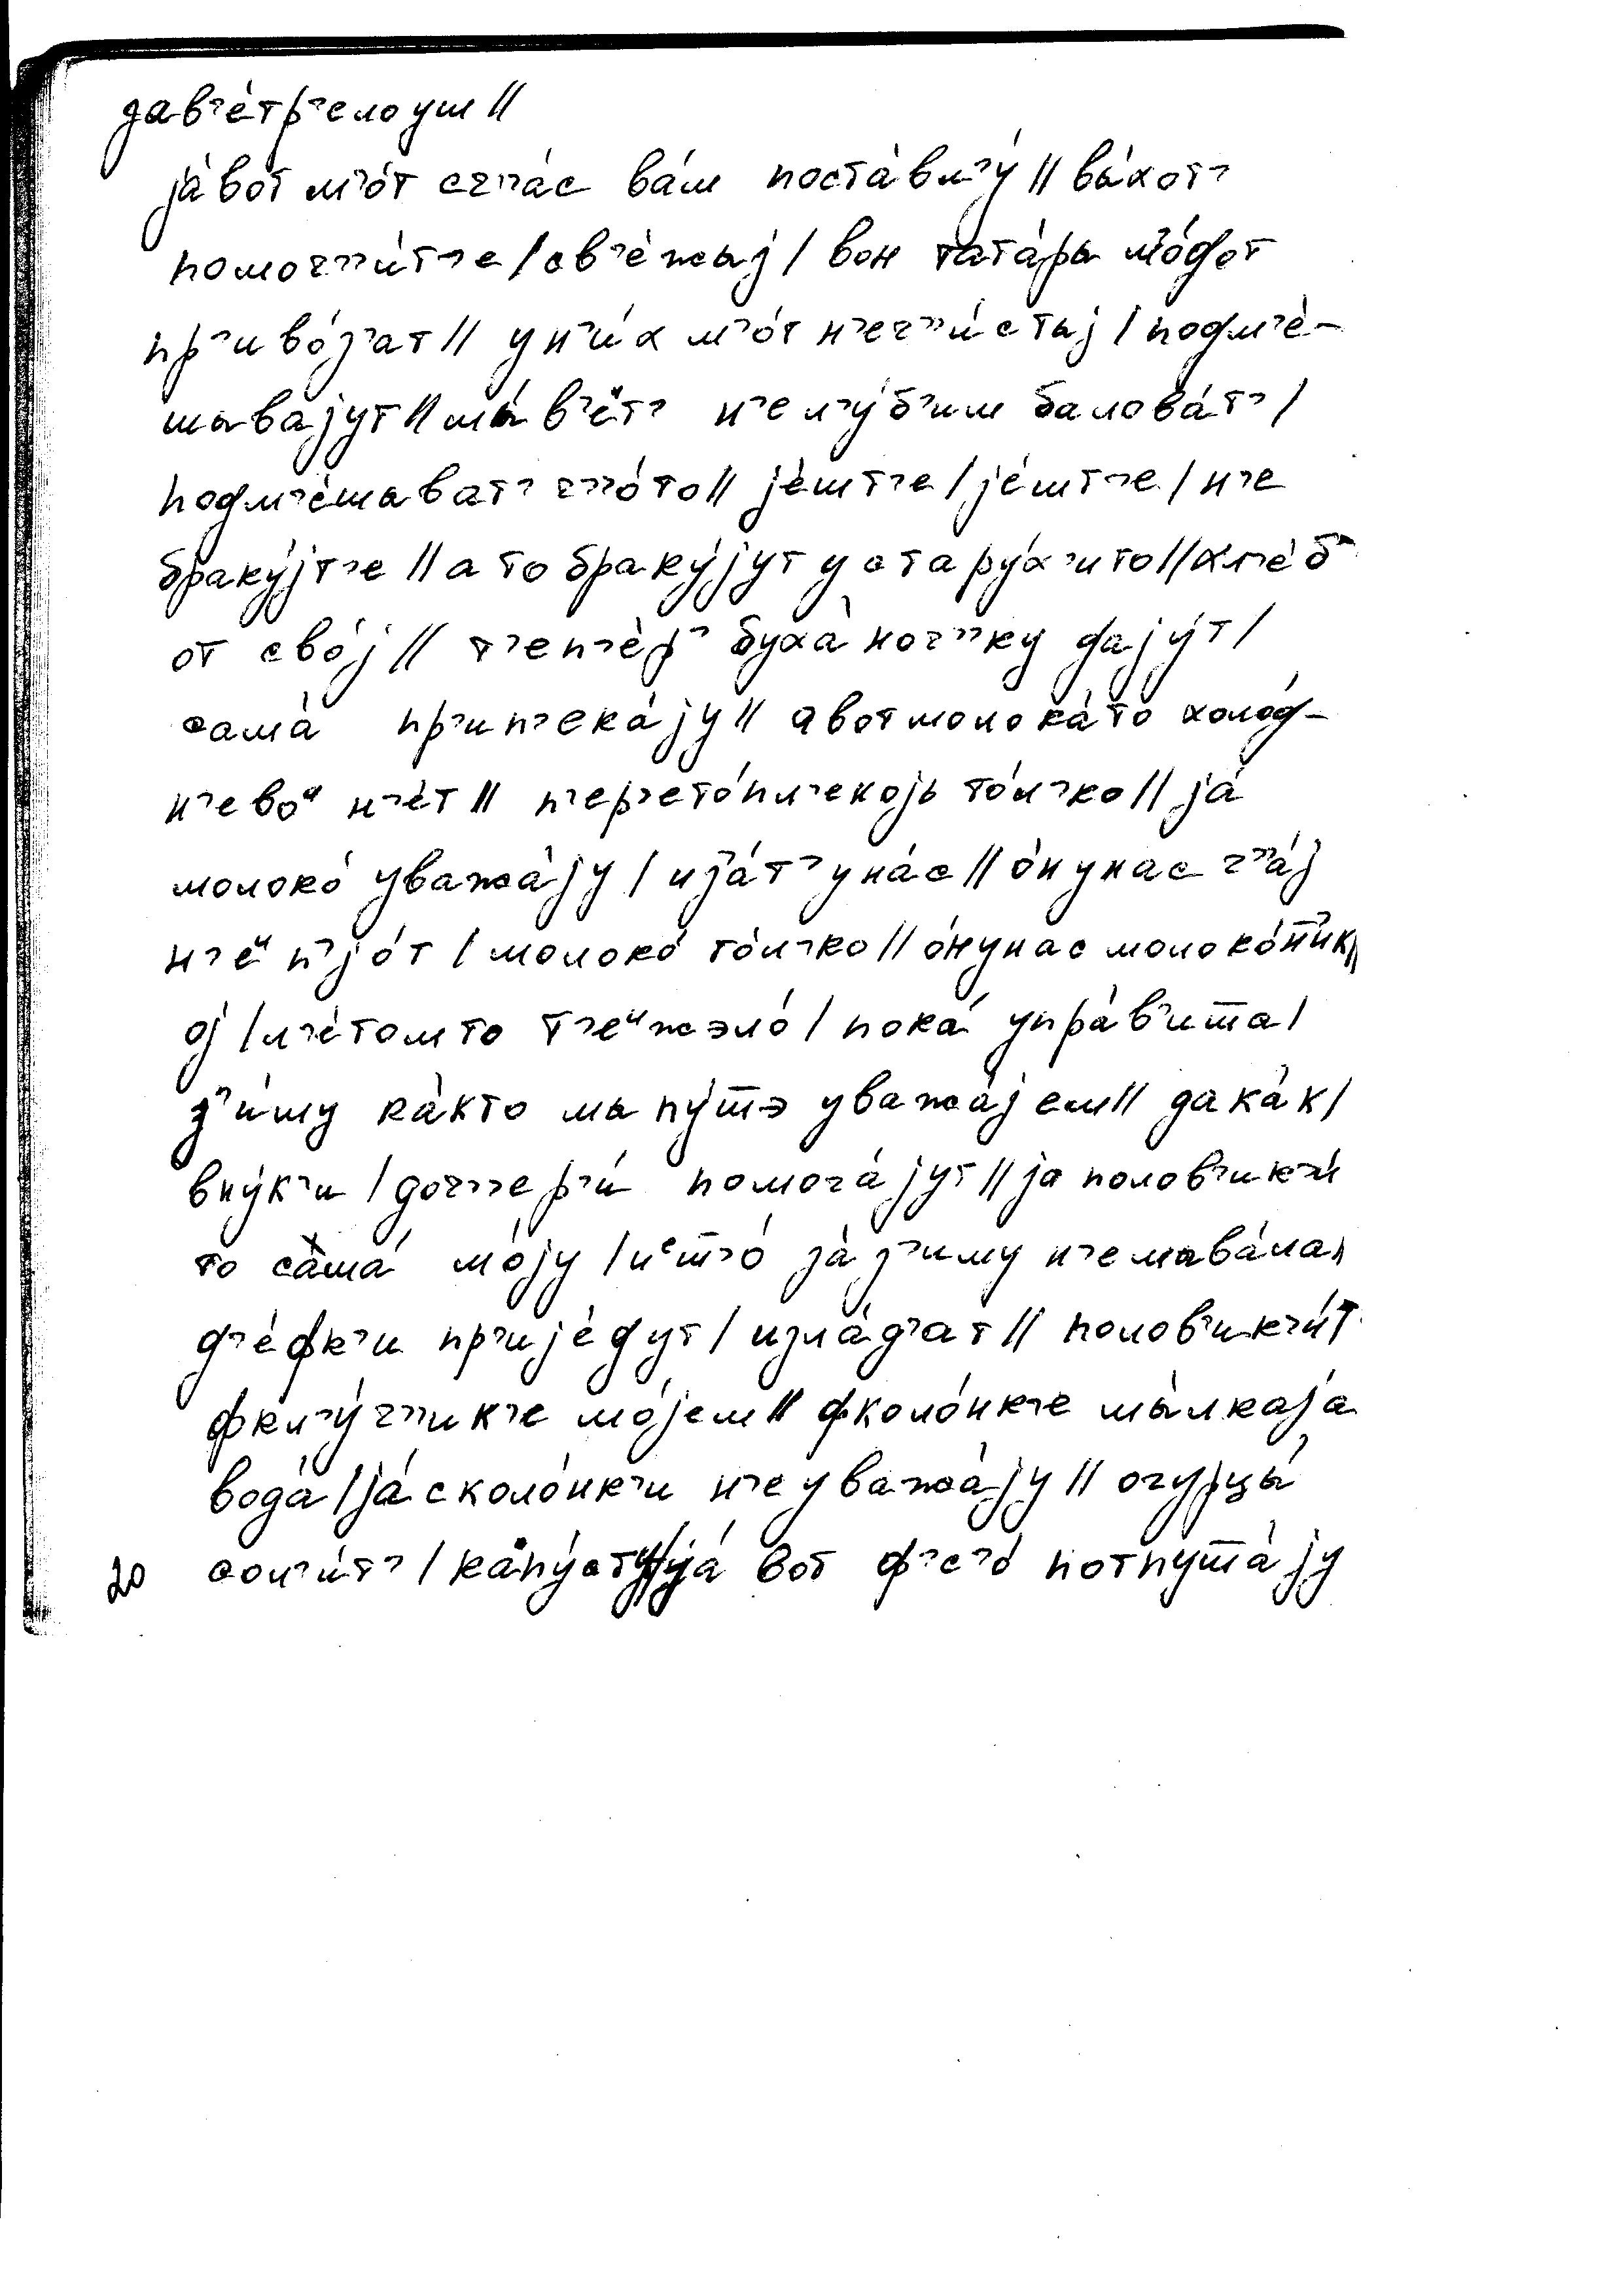 дав'е́тр'елоуш //
ја́вот м'о́т сч''а́с ва́м поста́вл'у́ // вы́хот'
помоч''и́т'е / св'е́жыј / вон тата́ры м'о́дот
пр'иво́з'ат // у н'и́х м'о́т н'еч''и́стыј / подм'е́-
шывајут // мы́ в'е́т' н'ел'у́б'им балова́т' /
подм'е́шыват' ч''о́то // је́шт'е / је́шт'е / н'е
браку́јт'е // а то браку́јут у стару́х'ито // хл'е́б
от сво́ј // т'еп'е́р' буха́ноч''ку дају́т /
сама́ пр'ип'ека́ју // авотмолока́то холо́д-
н'евоᵘ н'е́т // п'ер'ето́пл'енојь то́л'ко // ја́
молоко́ уважа́ју / из'а́т' уна́с // о́н унас ч''а́ј
н'еᵘ п'јо́т / молоко́ то́л'ко // о́нунас молоко́н'ик //
ој / л'е́томто т'еᵘжэло́ / пока́ упра́в'иш̅а /
з'и́му ка́кто мы пу́ш̅э уважа́јем // дака́к /
вну́к'и / доч''ер'и́ помога́јут // ја полов'ик'и́
то сама́ мо́ју / иᵉш̅'о́ за́з'иму н'емыва́ла //
д'е́фк'и пр'ије́дут / изла́д'ат // полов'ик'и́т
фкл'у́ч''ик'е мо́јем // фколо́нк'е мы́лкаја
вода́ / ја́ сколо́нк'и н'еуважа́ју // огурцы́
20 сол'и́т' / капу́сту // ја́ вот ф'с'о́ потпуш̅а́ју